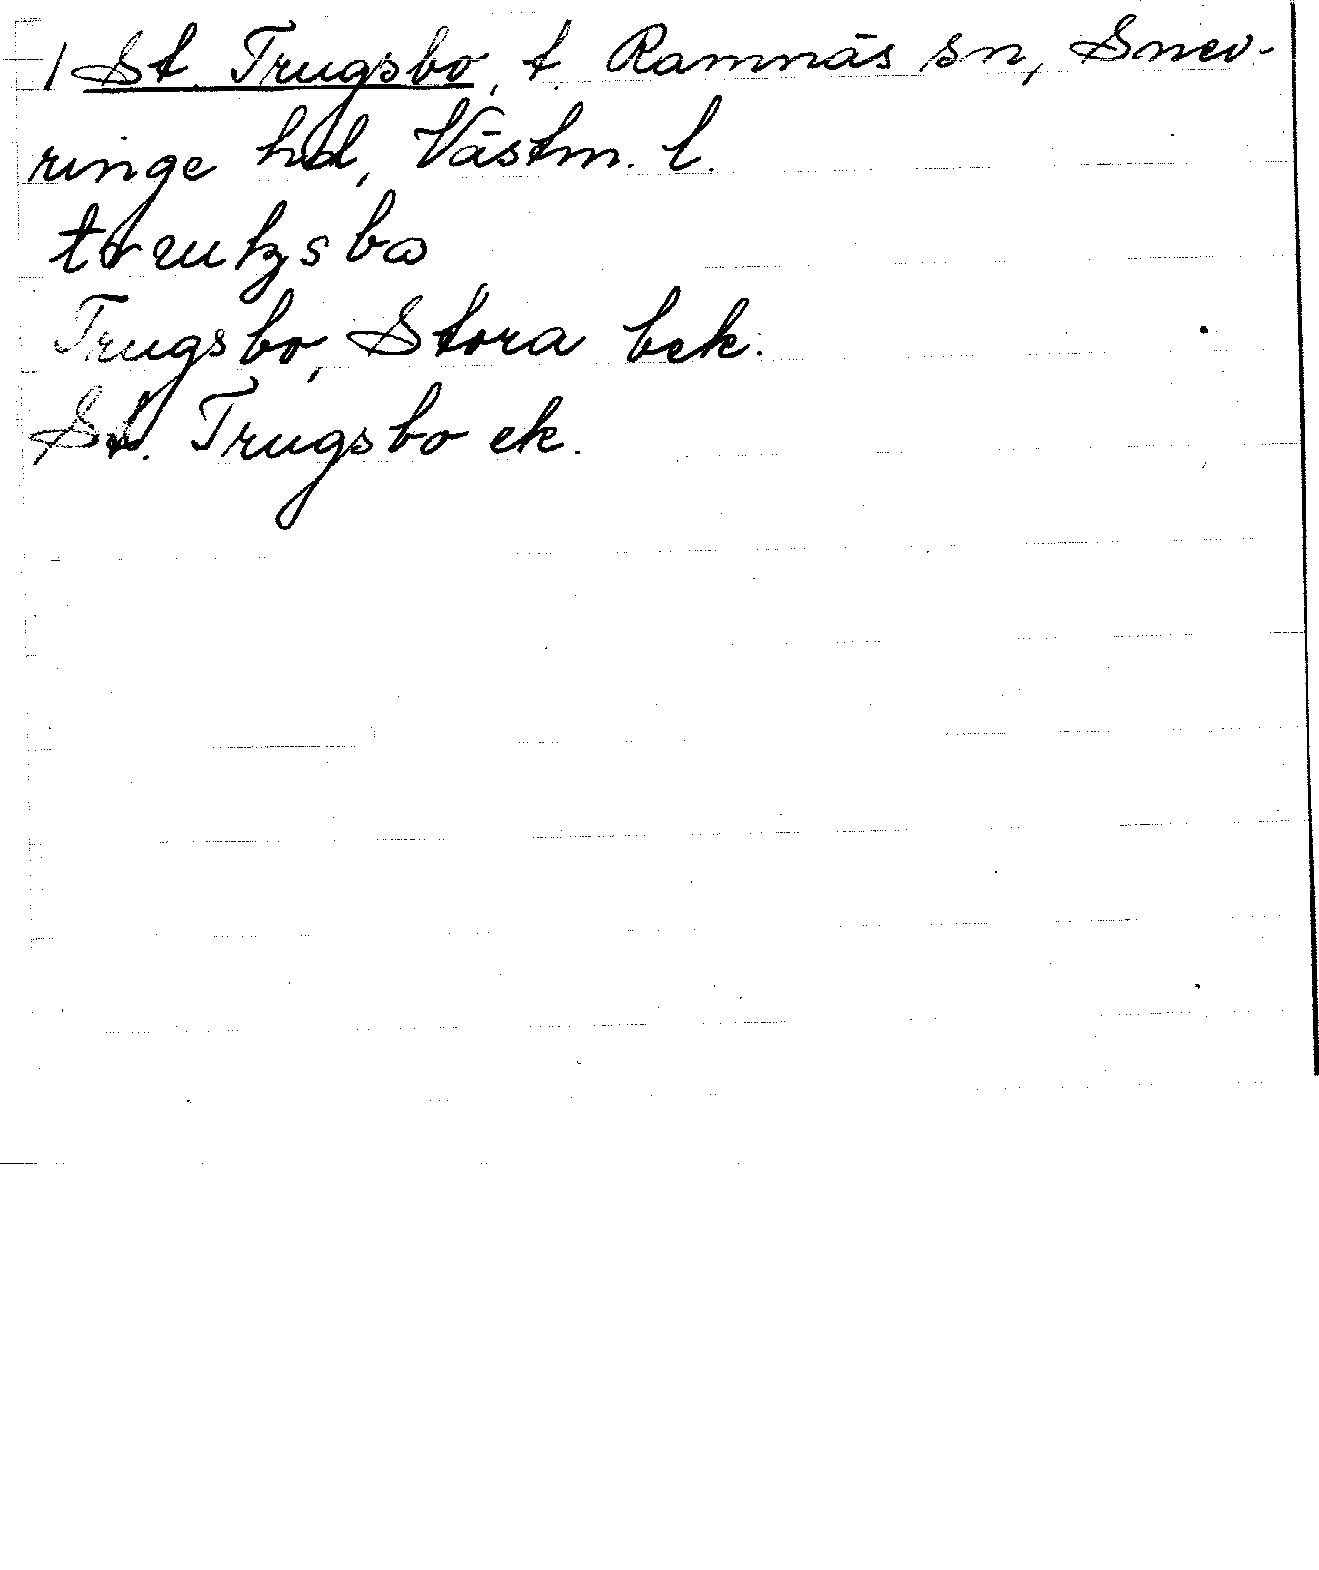 / St. Trugsbo, t. Ramnäs sn, Snev-
ringe hd, Västm. l.
Trugsbo, Stora bek.
St. Trugsbo ek.